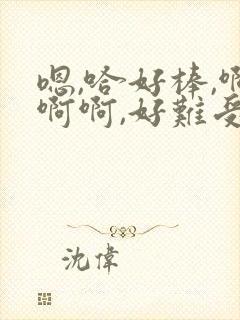 嗯,哈好棒,啊
啊啊,好難受
沈偉